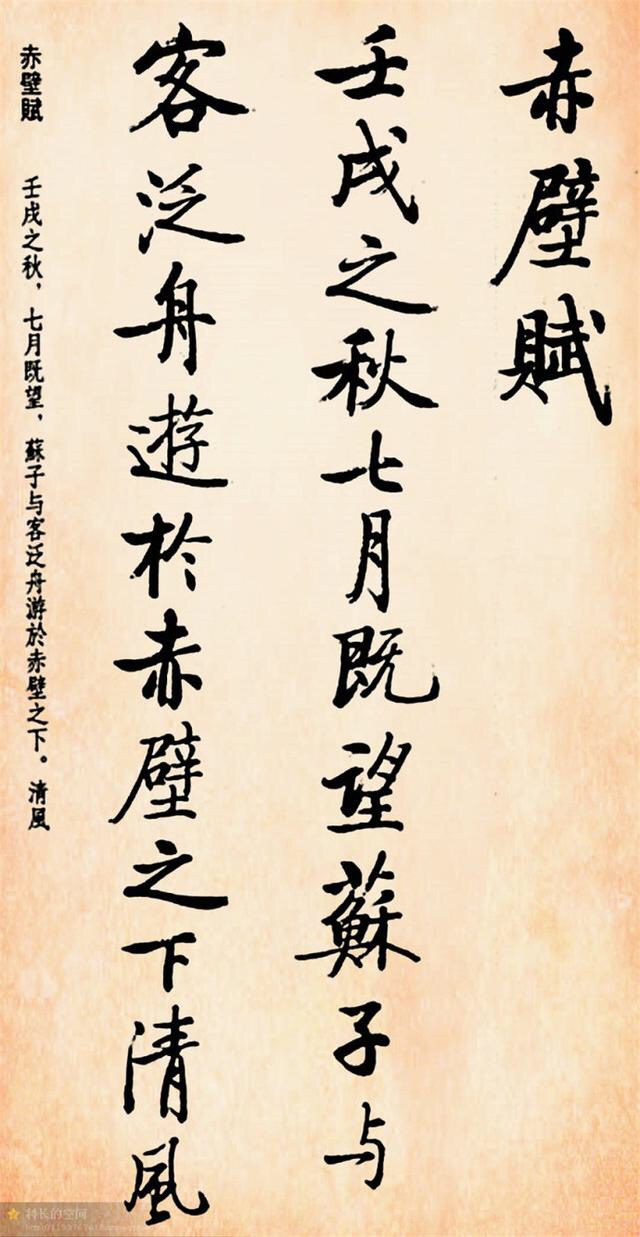 赤壁賦
壬戌之秋七月既望蘇子与
客泛舟遊於赤壁之下清風
赤壁賦　壬戌之秋，七月既望，蘇子与客泛舟游於赤壁之下。清風
科长的空间